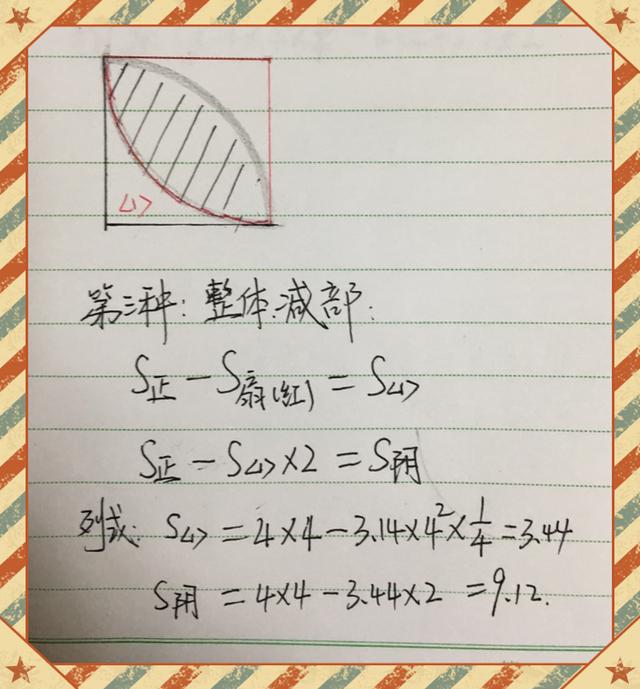 <1>
第三种:整体减部:
S正-S扇(红)=S<1>
S正-S<1>×2=S阴
列式:S<1>=4×4-3.14×4²×1/4=3.44
S阴=4×4-3.44×2=9.12.